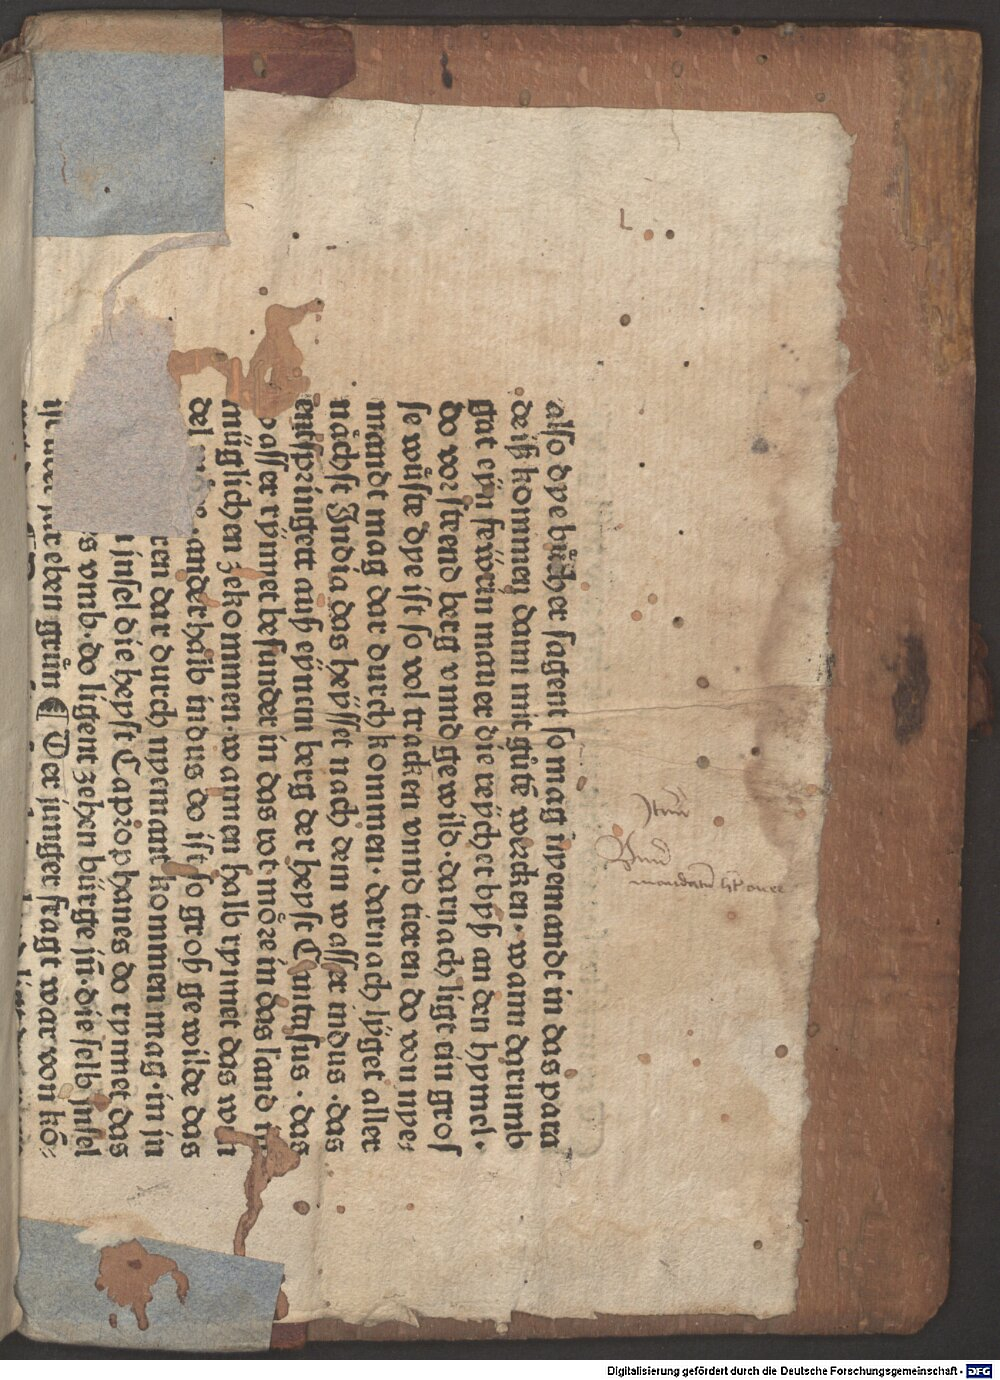 also dye bůcher sagent so mag nyemandt in das para
deiß kommen dann mit gůtē wercken. wann darumb
gat eyn fewrin mauer die reÿchet byß an den hymel.
do vor steend berg vnnd gewild. darnach ligt ein gros
se wůste dye ist so vol tracken vnnd tieren do von nye⸗
mandt mag dar durch kommen. darnach lÿget aller
nåchst India das heÿsset nach dem wasser indus. das
entspringett auß eÿnem berg der heyst das
wasser rÿnnet besunder in das rot möre in das land
müglichen zekommen. wannen halb rynnet das
del anderhalb indus do ist so groß gewilde das
ren dar durch nyemant kommen mag. in jn
insel die heyst Taprophanes do rynnet das
vmb. do ligent zehen bürge jn. die selb jnsel
eben grůn ¶ Der junger fragt war von kö⸗
L
Item
mandatū
Digitalisierung gefördert durch die Deutsche Forschungsgemeinschaft - DFG